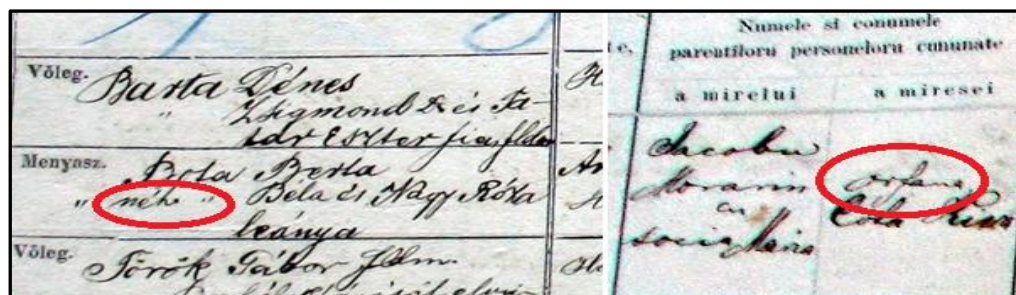 Vőleg.
Barta Dénes
" Zsigmond & és Ta-
tár Eszter fia, flda
Menyasz.
Bota Berta
" néh. " Béla és Nagy Róza
leánya
Vőleg.
Török Gábor fldm.
Numele si conumele
te, parentiloru personeloru cununate
a mirelui a miresei
Iacobu
Morariu orfana
cu
socia Maria